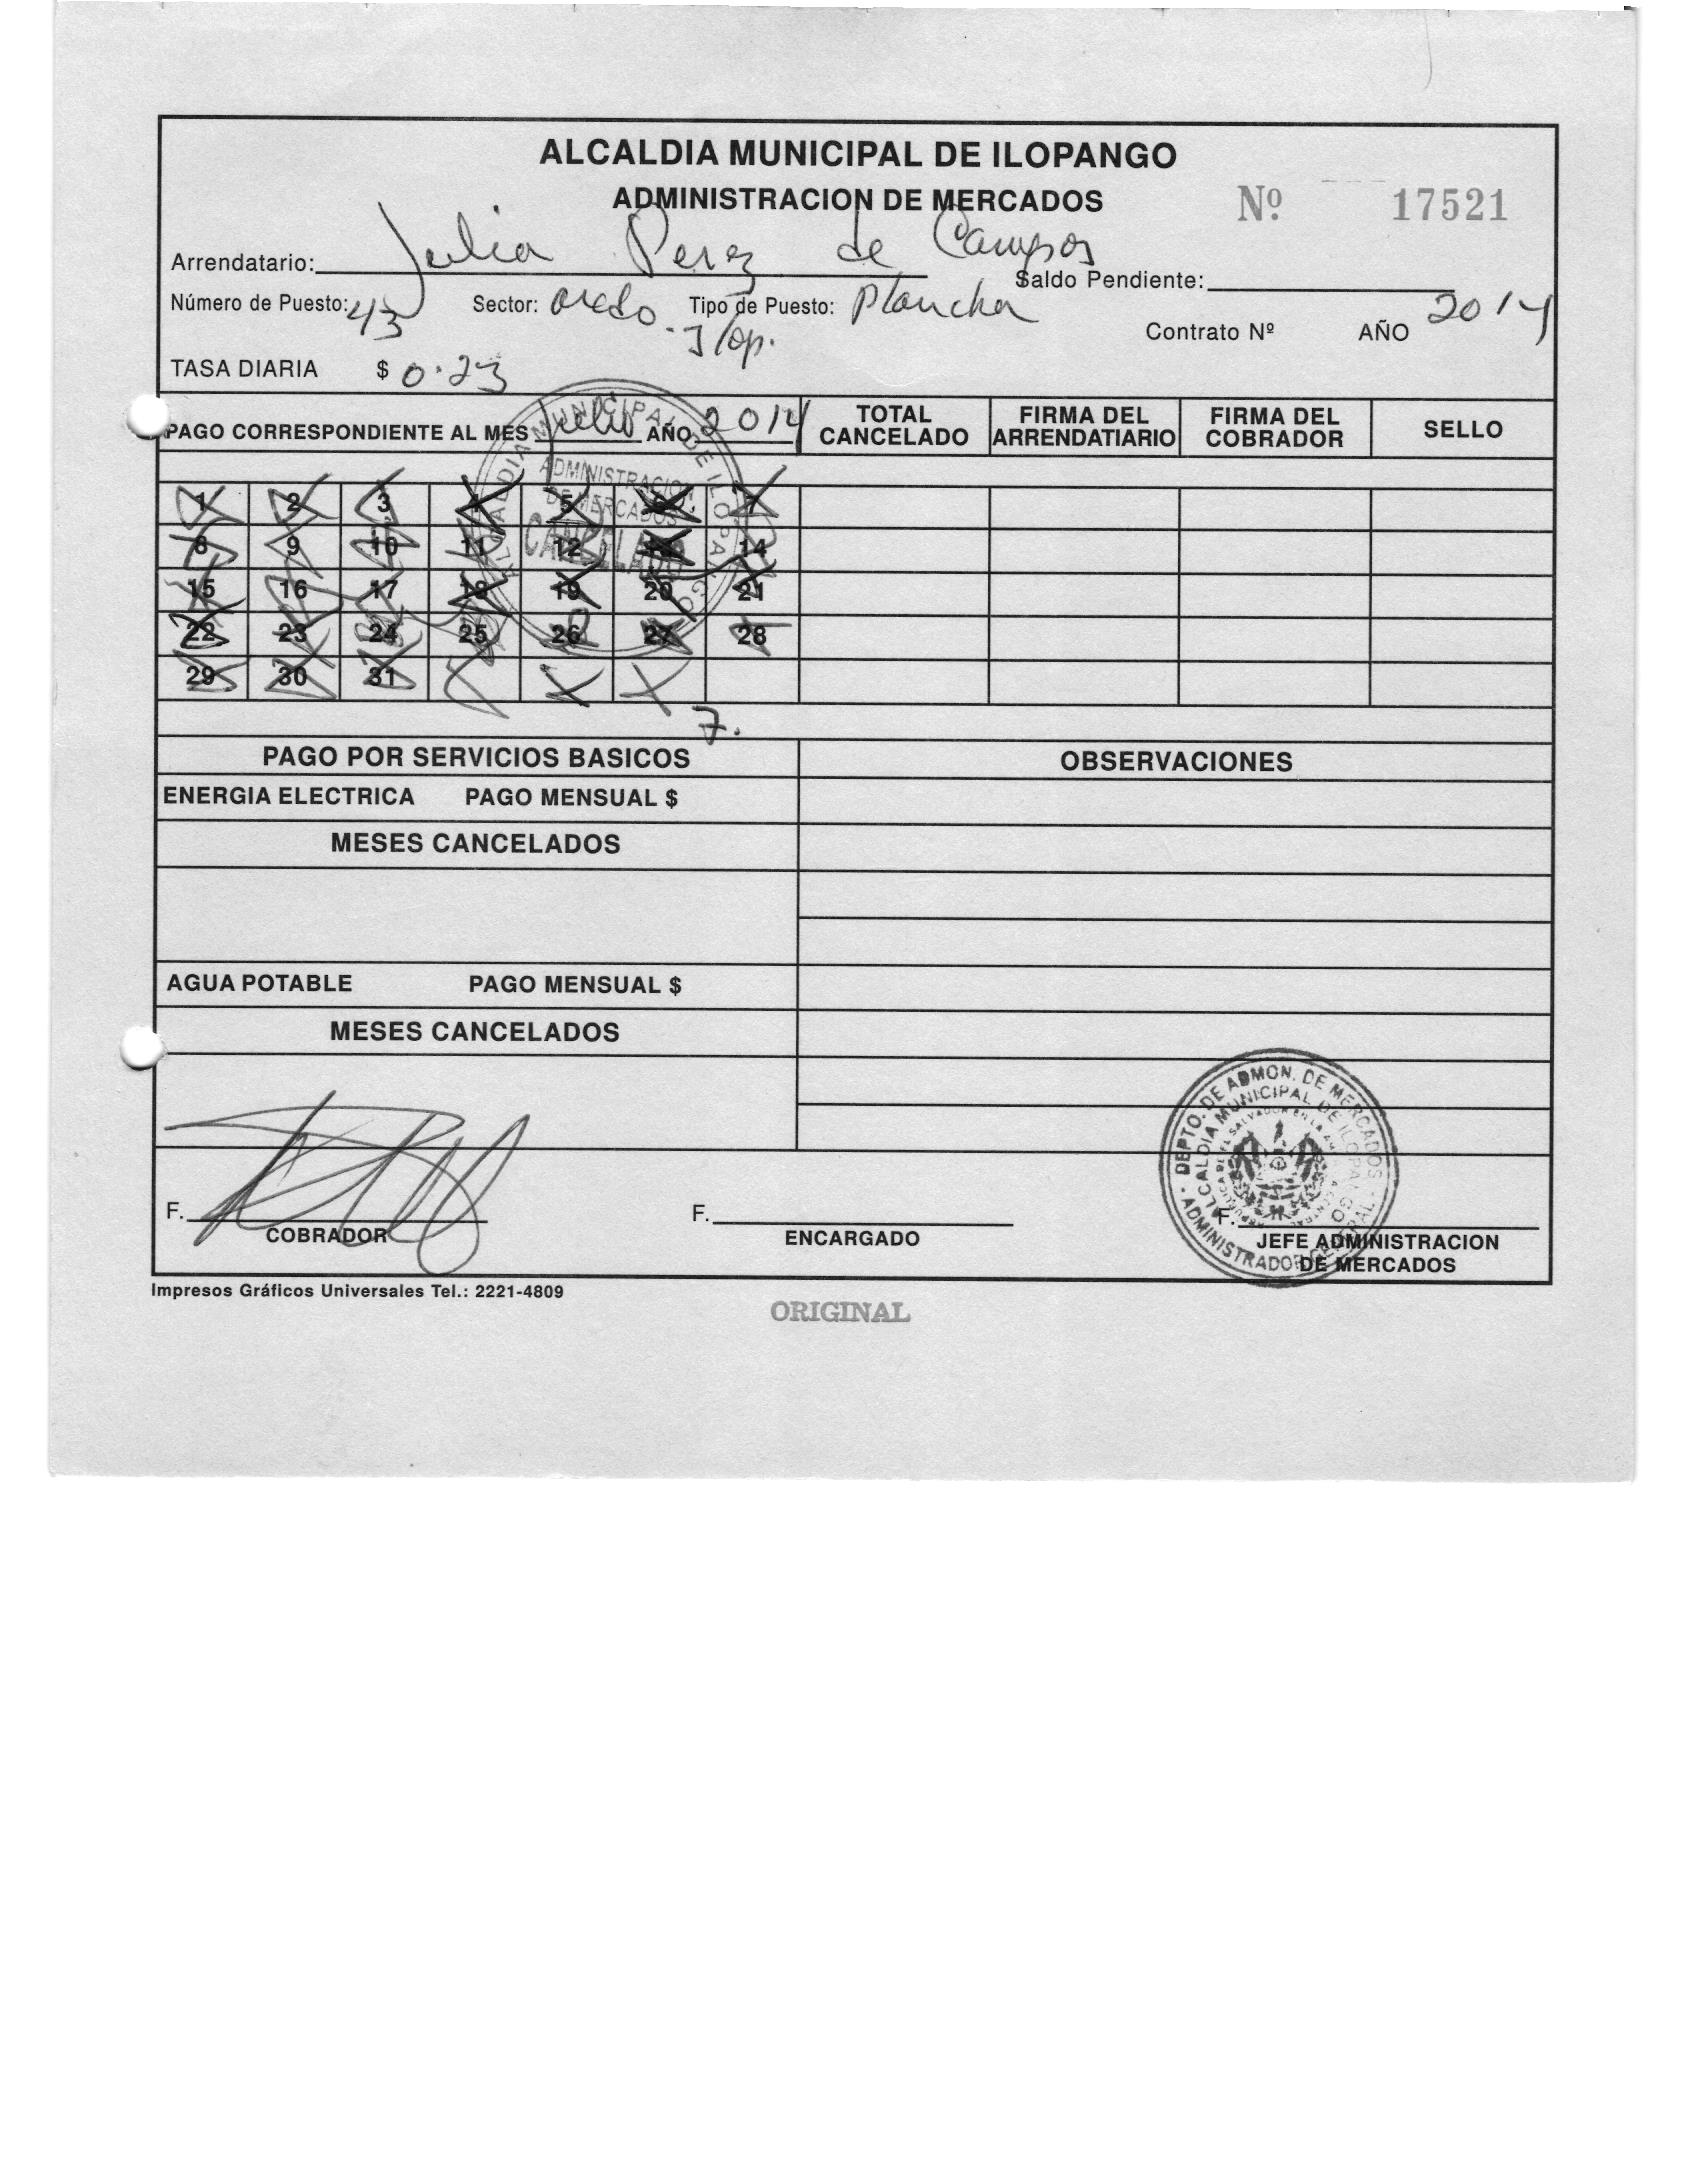 ALCALDIA MUNICIPAL DE ILOPANGO
ADMINISTRACION DE MERCADOS
Nº 17521
Arrendatario: Julia Perez de Campos
Saldo Pendiente:
Número de Puesto: 43 Sector: Tipo de Puesto: Plancha
Ilop.
Contrato Nº AÑO 2014
TASA DIARIA $ 0.23
PAGO CORRESPONDIENTE AL MES Julio AÑO 2014 TOTAL CANCELADO FIRMA DEL ARRENDATIARIO FIRMA DEL COBRADOR SELLO
ALCALDIA MUNICIPAL DE ILOPANGO
ADMINISTRACION
DE MERCADOS
CANCELADO
1 2 3 4 5 6 7
8 9 10 11 12 13 14
15 16 17 18 19 20 21
22 23 24 25 26 27 28
29 30 31
7.
PAGO POR SERVICIOS BASICOS OBSERVACIONES
ENERGIA ELECTRICA PAGO MENSUAL $
MESES CANCELADOS
AGUA POTABLE PAGO MENSUAL $
MESES CANCELADOS
DEPTO. DE ADMON. DE MERCADOS
ALCALDIA MUNICIPAL DE ILOPANGO
REPUBLICA DE EL SALVADOR EN LA AMERICA CENTRAL
ADMINISTRADOR GENERAL
F. F. F.
COBRADOR ENCARGADO JEFE ADMINISTRACION
DE MERCADOS
Impresos Gráficos Universales Tel.: 2221-4809
ORIGINAL